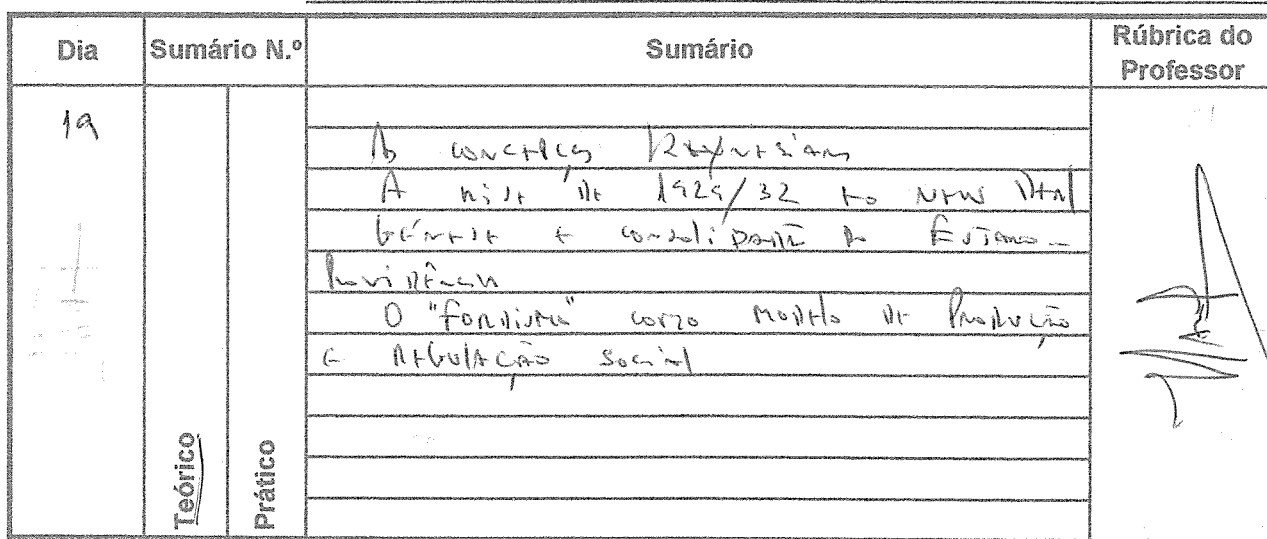 Dia Sumário N.º Sumário Rúbrica do Professor
19
As concepções Keynesianas
A crise de 1929/32 e o New Deal
Génese e consolidação do Estado-
Providência
O "Fordismo" como modelo de Produção
e Regulação Social
Teórico
Prático